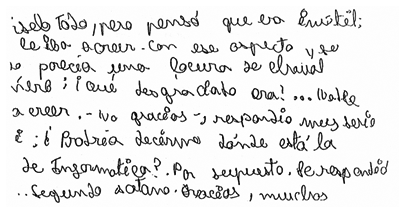 iselo todo, pero pensó que era inútil;
le iba a creer. Con ese aspecto y se
parecía una locura de
¡qué desgraciado era!... Nadie
a creer. - No gracias -, respondió muy serio
; ¿ Podría decirme dónde está la
de Informática?. Por supuesto. Le respondió
.. Segundo sótano. Gracias, muchas